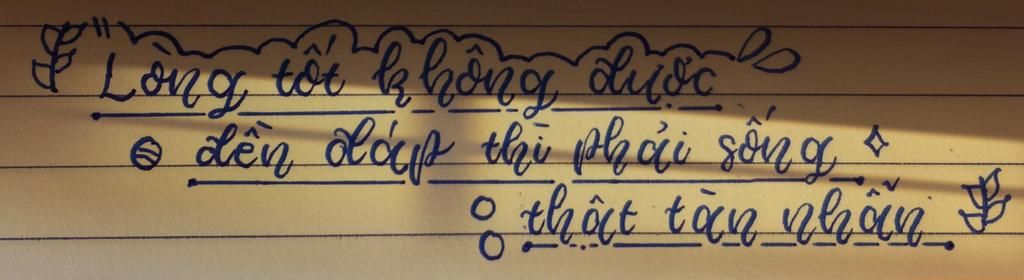 Lòng tốt không được
đền đáp thì phải sống
thật tàn nhẫn